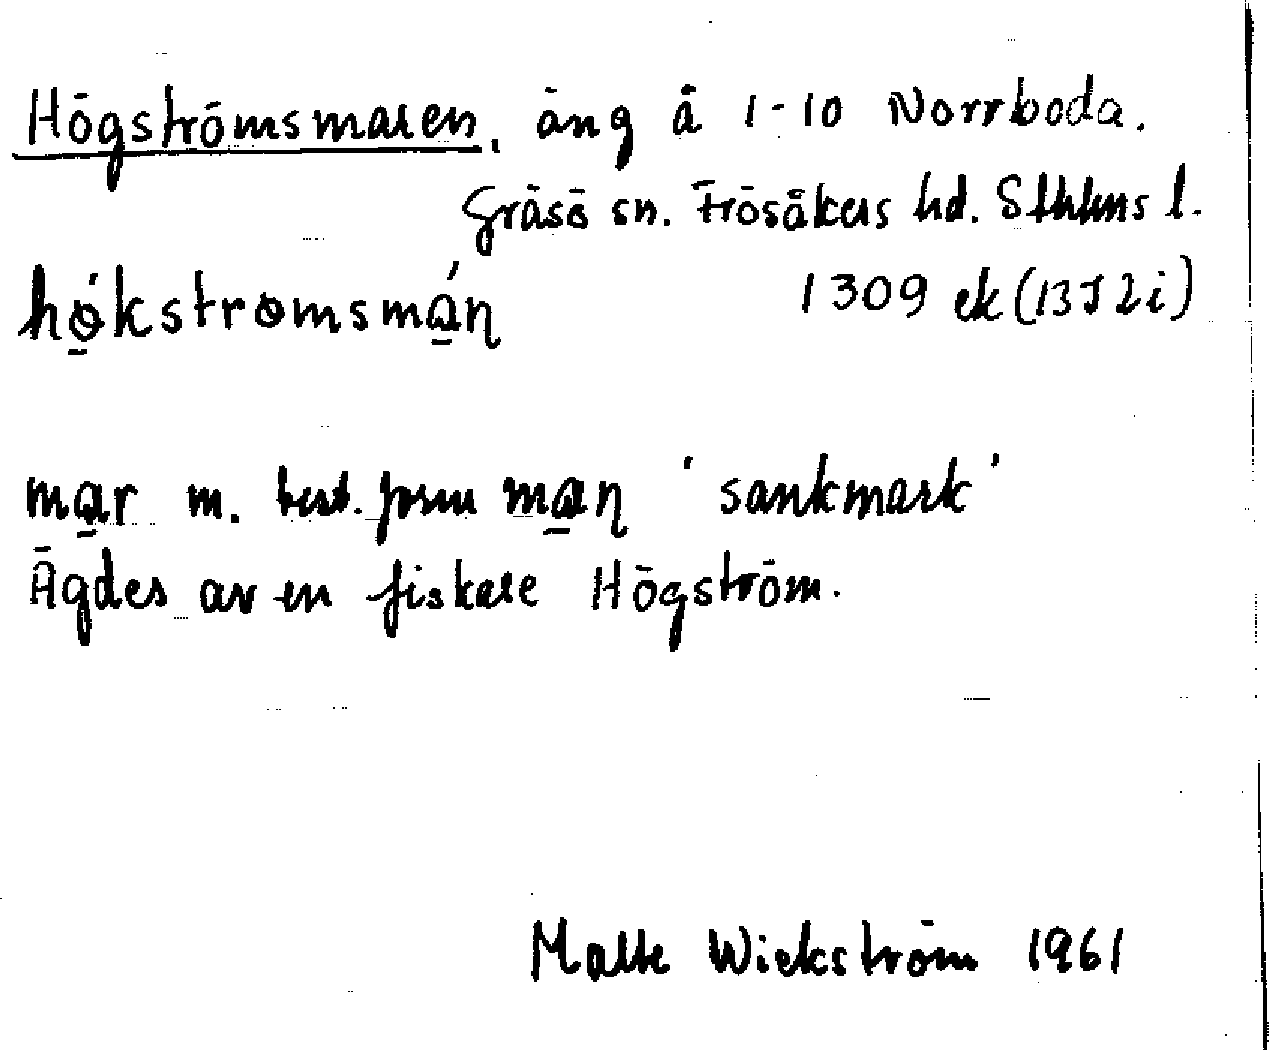 Högströmsmaren, äng å 1-10 Norrboda.
Gräsö sn. Frösåkers hd. Sthlms l.
hǿ̱kstrømsmɑ̱́ɳ 1309 ek (13I2i)
mɑ̱r m. best. form mɑ̱ɳ 'sankmark'
Ägdes av en fiskare Högström.
Malte Wickström 1961